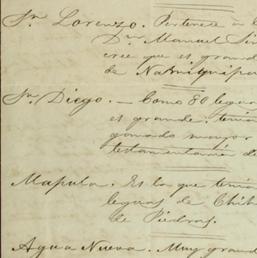 Sn. Lorenzo. Pertenece a l
Dn. Manuel Sim
cree que es grand
de Namiquipa
Sn. Diego. — Como 80 legua
es grande: tenia
ganado mayor
testamentaría de
Mapula. Es la que tenia
leguas de Chih
de Piedras.
Agua Nueva. Muy grand